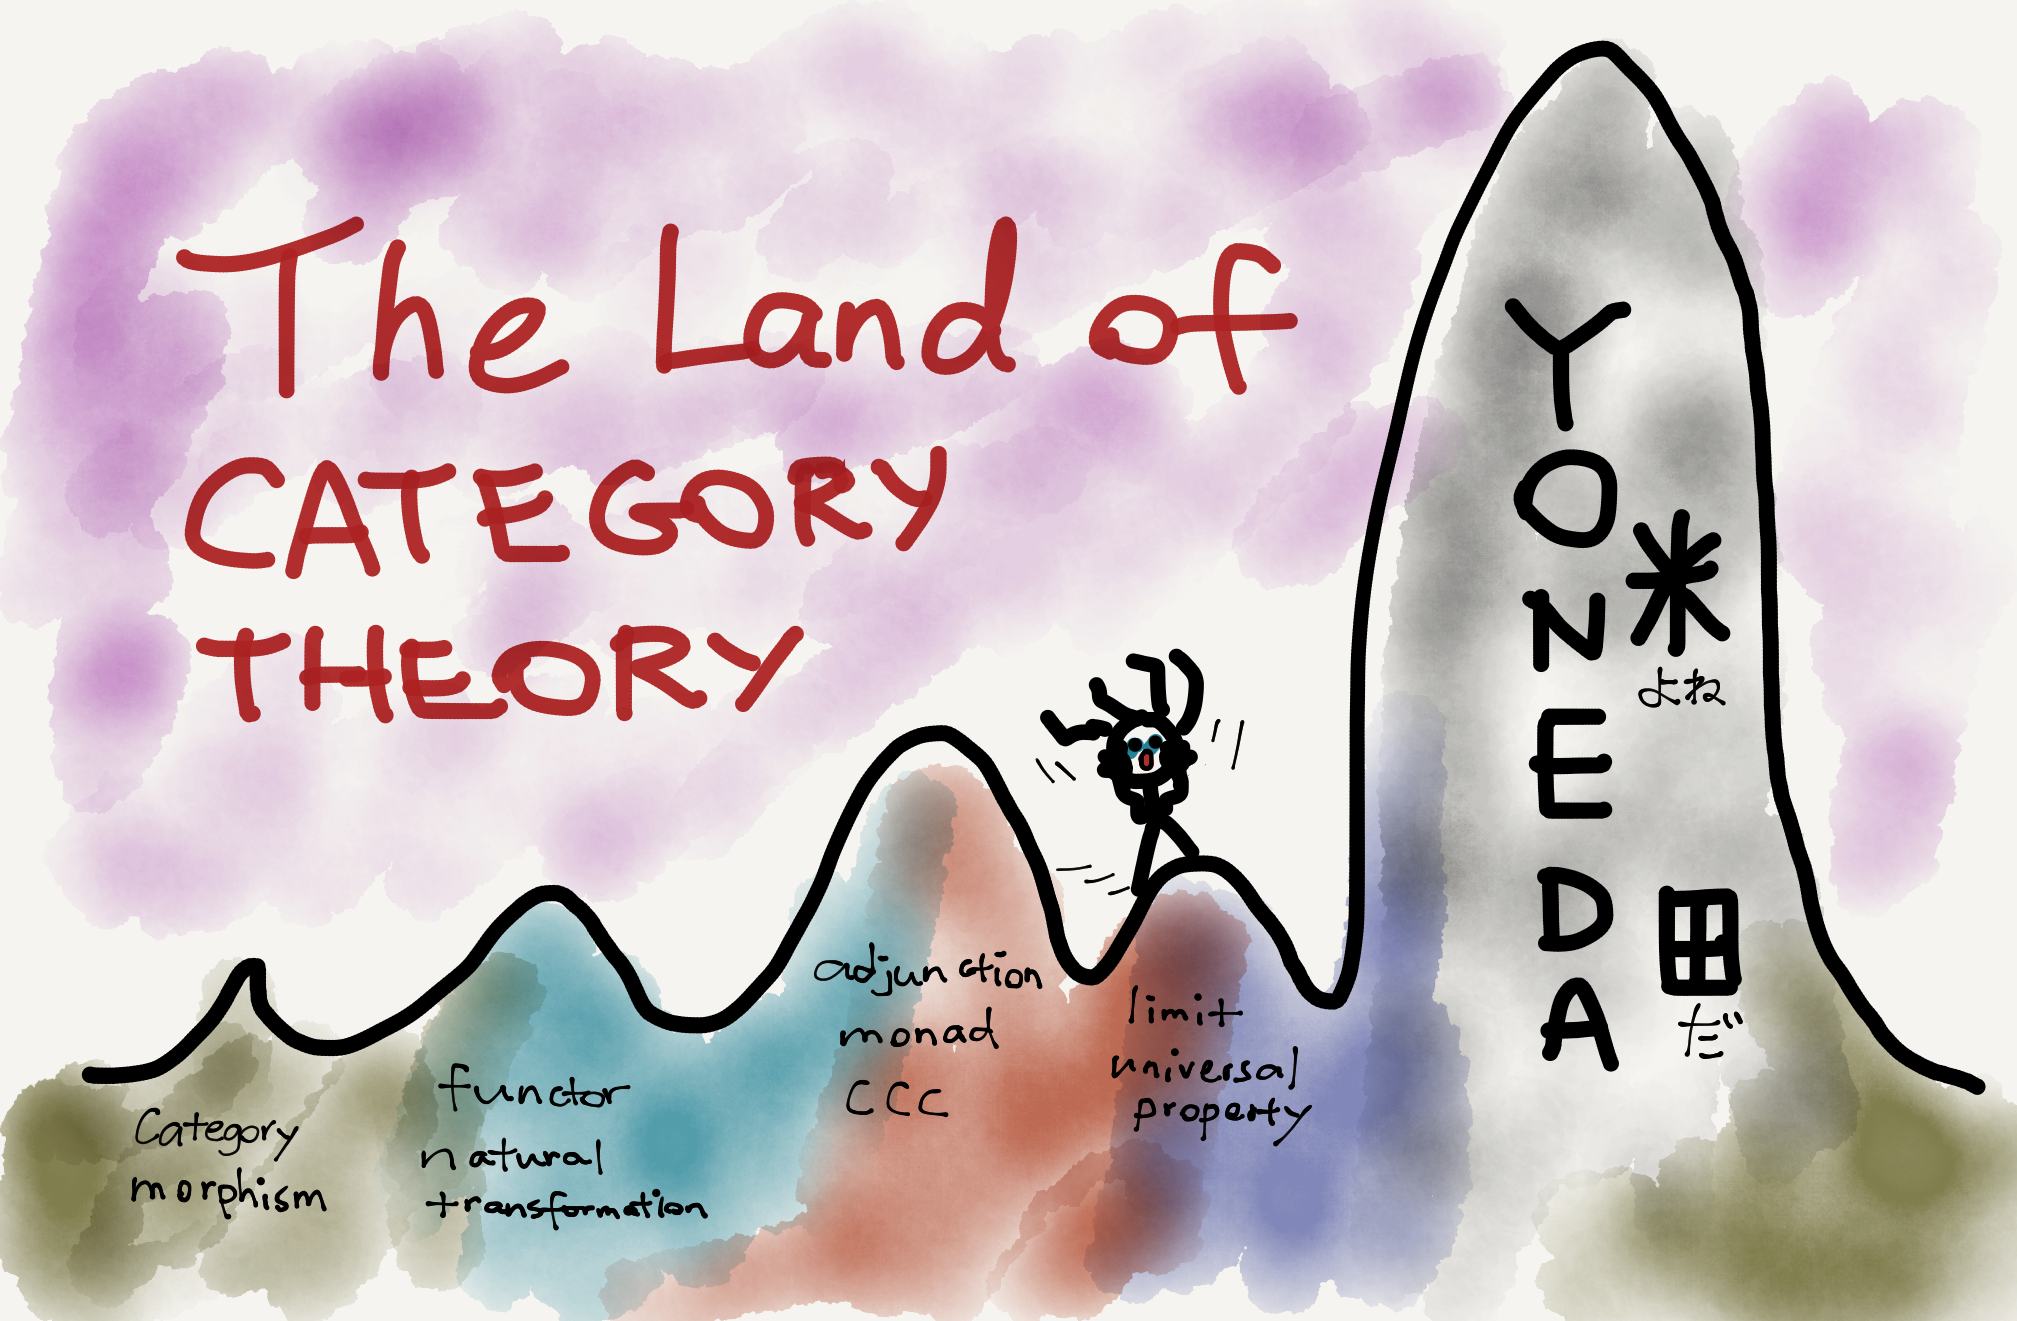 The Land of
CATEGORY
THEORY
Category
morphism
functor
natural
transformation
adjunction
monad
CCC
limit
universal
property
YONEDA
米
よね
田
だ